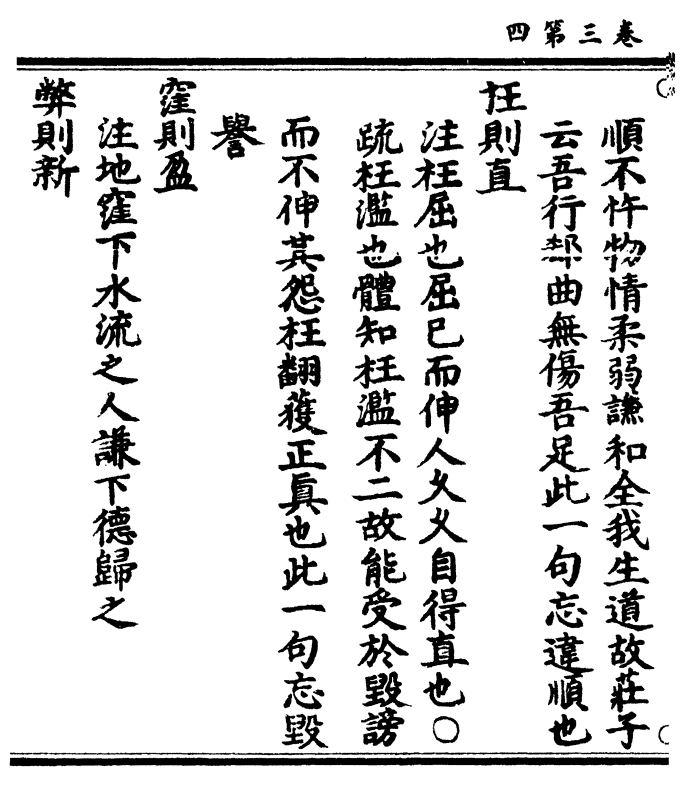 卷三第四
順不忤物情柔弱謙和全我生道故莊子
云吾行郄曲無傷吾足此一句忘違順也
枉則直
注枉屈也屈已而伸人久久自得直也○
疏枉濫也體知枉濫不二故能受於毀謗
而不伸其怨枉翻獲正眞也此一句忘毀
譽
窪則盈
注地窪下水流之人謙下德歸之
弊則新